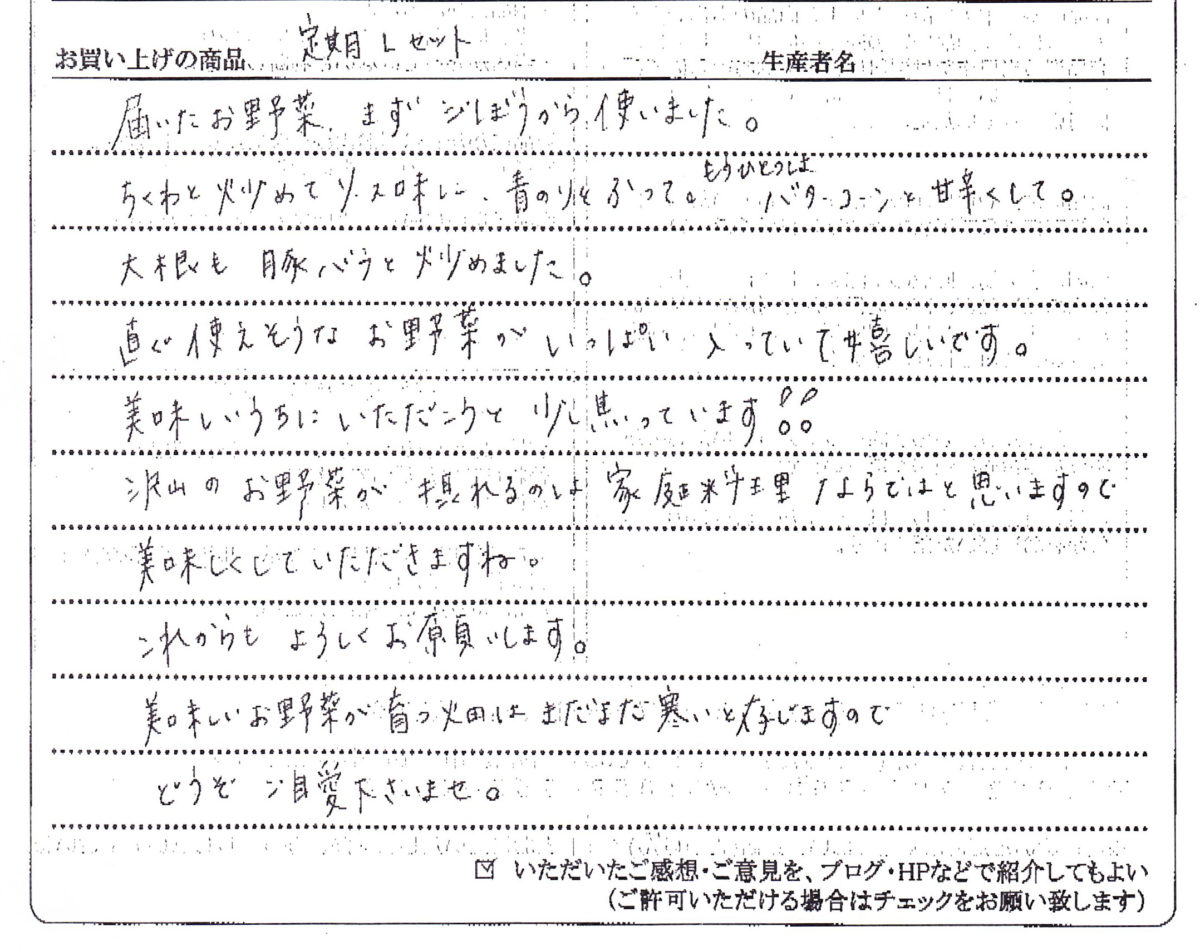 お買い上げの商品 定期 Lセット 生産者名
届いたお野菜、まず ごぼうから使いました。
ちくわと炒めてソース味に、青のりをふって。もうひとつは バターコーンと甘辛くして。
大根も 豚バラと炒めました。
直ぐ使えそうな お野菜が いっぱい 入っていて嬉しいです。
美味しいうちにいただこうと 少し焦っています!!
沢山の お野菜が 摂れるのは 家庭料理 ならではと思いますので
美味しくしていただきますね。
これからも よろしくお願いします。
美味しいお野菜が育つ畑は まだまだ寒いと存じますので
どうぞ ご自愛下さいませ。
☑ いただいたご感想・ご意見を、ブログ・HPなどで紹介してもよい
(ご許可いただける場合はチェックをお願い致します)